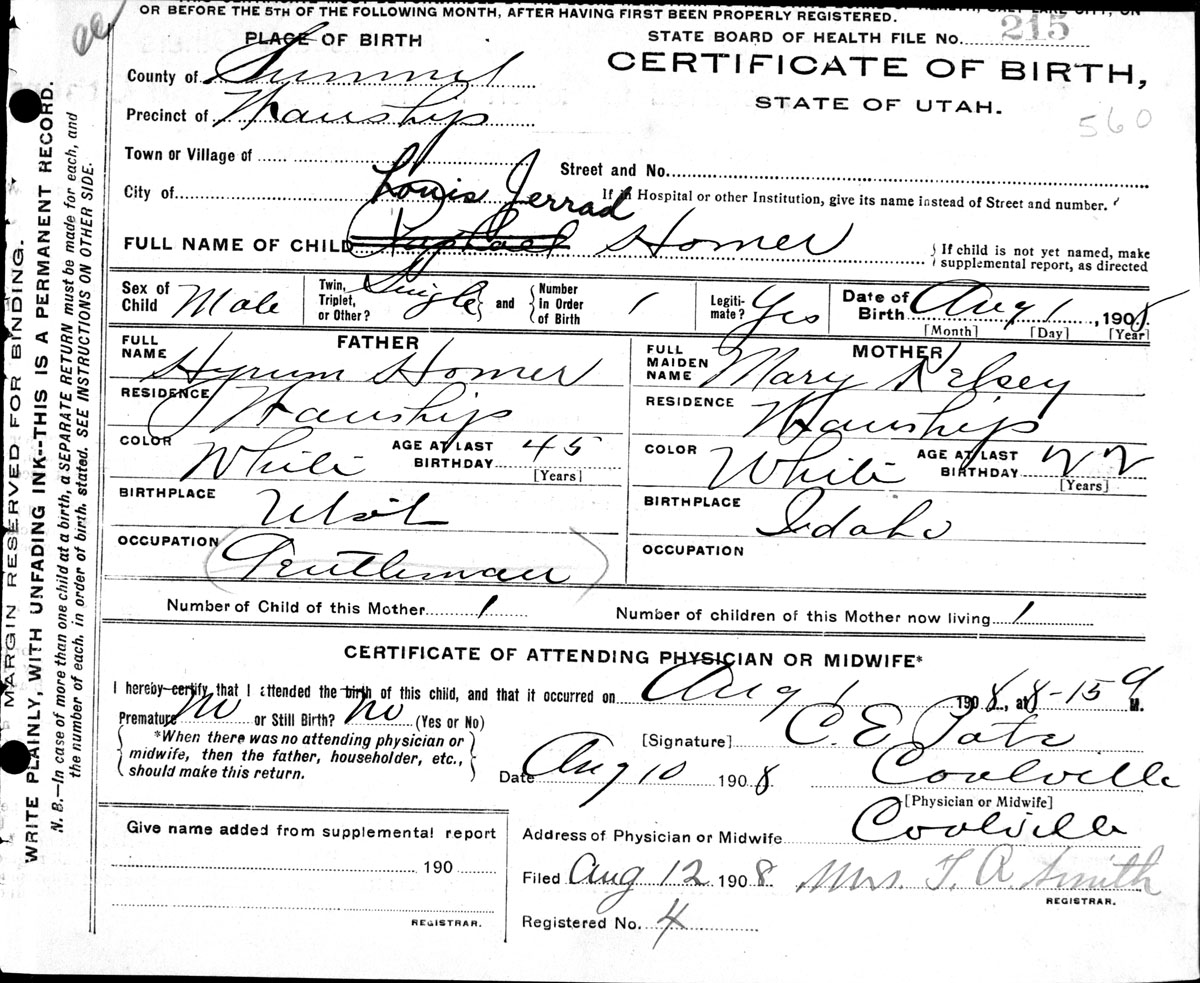 OR BEFORE THE 5TH OF THE FOLLOWING MONTH, AFTER HAVING FIRST BEEN PROPERLY REGISTERED.
PLACE OF BIRTH
STATE BOARD OF HEALTH FILE No. 215
CERTIFICATE OF BIRTH,
STATE OF UTAH.
560
County of Summit
Precinct of Wanship
Town or Village of
Street and No.
City of
If in Hospital or other Institution, give its name instead of Street and number.
Louis Jerrad
FULL NAME OF CHILD Raphael Homer
If child is not yet named, make supplemental report, as directed
Sex of Child Male
Twin, Triplet, or Other? Single and Number In Order of Birth 1
Legitimate? Yes
Date of Birth Aug 1, 1908
[Month] [Day] [Year]
FATHER
FULL NAME Hyrum Homer
RESIDENCE Wanship
COLOR White AGE AT LAST BIRTHDAY 45
[Years]
BIRTHPLACE Utah
OCCUPATION (Gentleman)
MOTHER
FULL MAIDEN NAME Mary Kelsey
RESIDENCE Wanship
COLOR White AGE AT LAST BIRTHDAY 22
[Years]
BIRTHPLACE Idaho
OCCUPATION
Number of Child of this Mother 1
Number of children of this Mother now living 1
CERTIFICATE OF ATTENDING PHYSICIAN OR MIDWIFE*
I hereby certify that I attended the birth of this child, and that it occurred on Aug 1 1908, at 8-15 M.
Premature No or Still Birth? No (Yes or No)
*When there was no attending physician or
midwife, then the father, householder, etc.,
should make this return.
[Signature] C. E.
Date Aug 10 1908
Coalville
[Physician or Midwife]
Address of Physician or Midwife Coalville
Filed Aug 12 1908 Mrs. T. A. Smith
REGISTRAR.
Registered No. 4
Give name added from supplemental report
190
REGISTRAR.
MARGIN RESERVED FOR BINDING.
WRITE PLAINLY, WITH UNFADING INK--THIS IS A PERMANENT RECORD.
N. B.—In case of more than one child at a birth, a SEPARATE RETURN must be made for each, and
the number of each, in order of birth, stated. SEE INSTRUCTIONS ON OTHER SIDE.